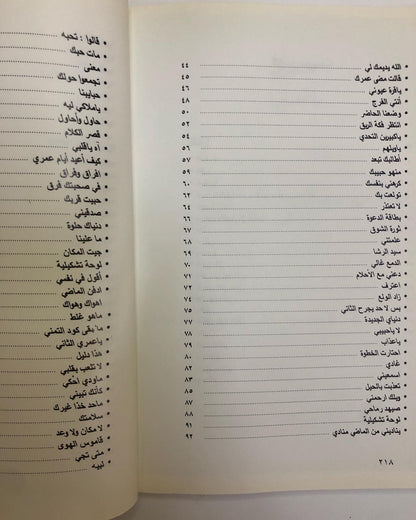 • الله يديمك لي ٤٤
• قالت مضى عمرك ٤٥
• ياقرة عيوني ٤٦
• أنتي الفرج ٤٨
• وضعنا الحاضر ٥٠
• انتظر فكة الريق ٥٢
• ياكبيرين التحدي ٥٤
• ياويلهم ٥٦
• أطالبك تبعد ٥٧
• منهو حبيبك ٥٩
• كرهني بنفسك ٦٠
• تولعت بك ٦٢
• لا تعتذر ٦٤
• بطاقة الدعوة ٦٦
• ثورة الشوق ٦٧
• علمتني ٦٨
• سيد الرشا ٧٠
• الدمع غالي ٧١
• دعني مع الأحلام ٧٢
• اعترف ٧٣
• زاد الولع ٧٤
• بس لا حد يجرح الثاني ٧٥
• دنياي الجديدة ٧٧
• لا ياحبيبي ٧٨
• ياعذاب ٧٩
• احتارت الخطوة ٨٠
• غادي ٨٢
• اسمعيني ٨٣
• تعذبت بالحيل ٨٥
• ويلك ارحمني ٨٧
• صيهد رماحي ٨٨
• لوحة تشكيلية ٩١
• يناديني من الماضي منادي ٩٢
٢١٨
• قالوا : تحبه
• مات حبك
• معنى
• تجمعوا حولك
• حبايبنا
• ياملاكي ليه
• حاول وأحاول
• قصر الكلام
• آه ياقلبي
• كيف أعيد أيام عمري
• افراق وفراق
• في صحبتك فرق
• حبيت قربك
• صدقيني
• دنياك حلوة
• ما علينا
• جيت المكان
• لوحة تشكيلية
• أقول في نفسي
• ادفن الماضي
• اهواك وهواك
• ماهو غلط
• ما بقى كود التمني
• ياعمري الثاني
• هذا دليل
• لا تلعب بقلبي
• ماودي احكي
• كأنك تبيني
• ماحد خذا غيرك
• سلامتك
• لا مكان ولا وعد
• قاموس الهوى
• متى تجي
• ليه